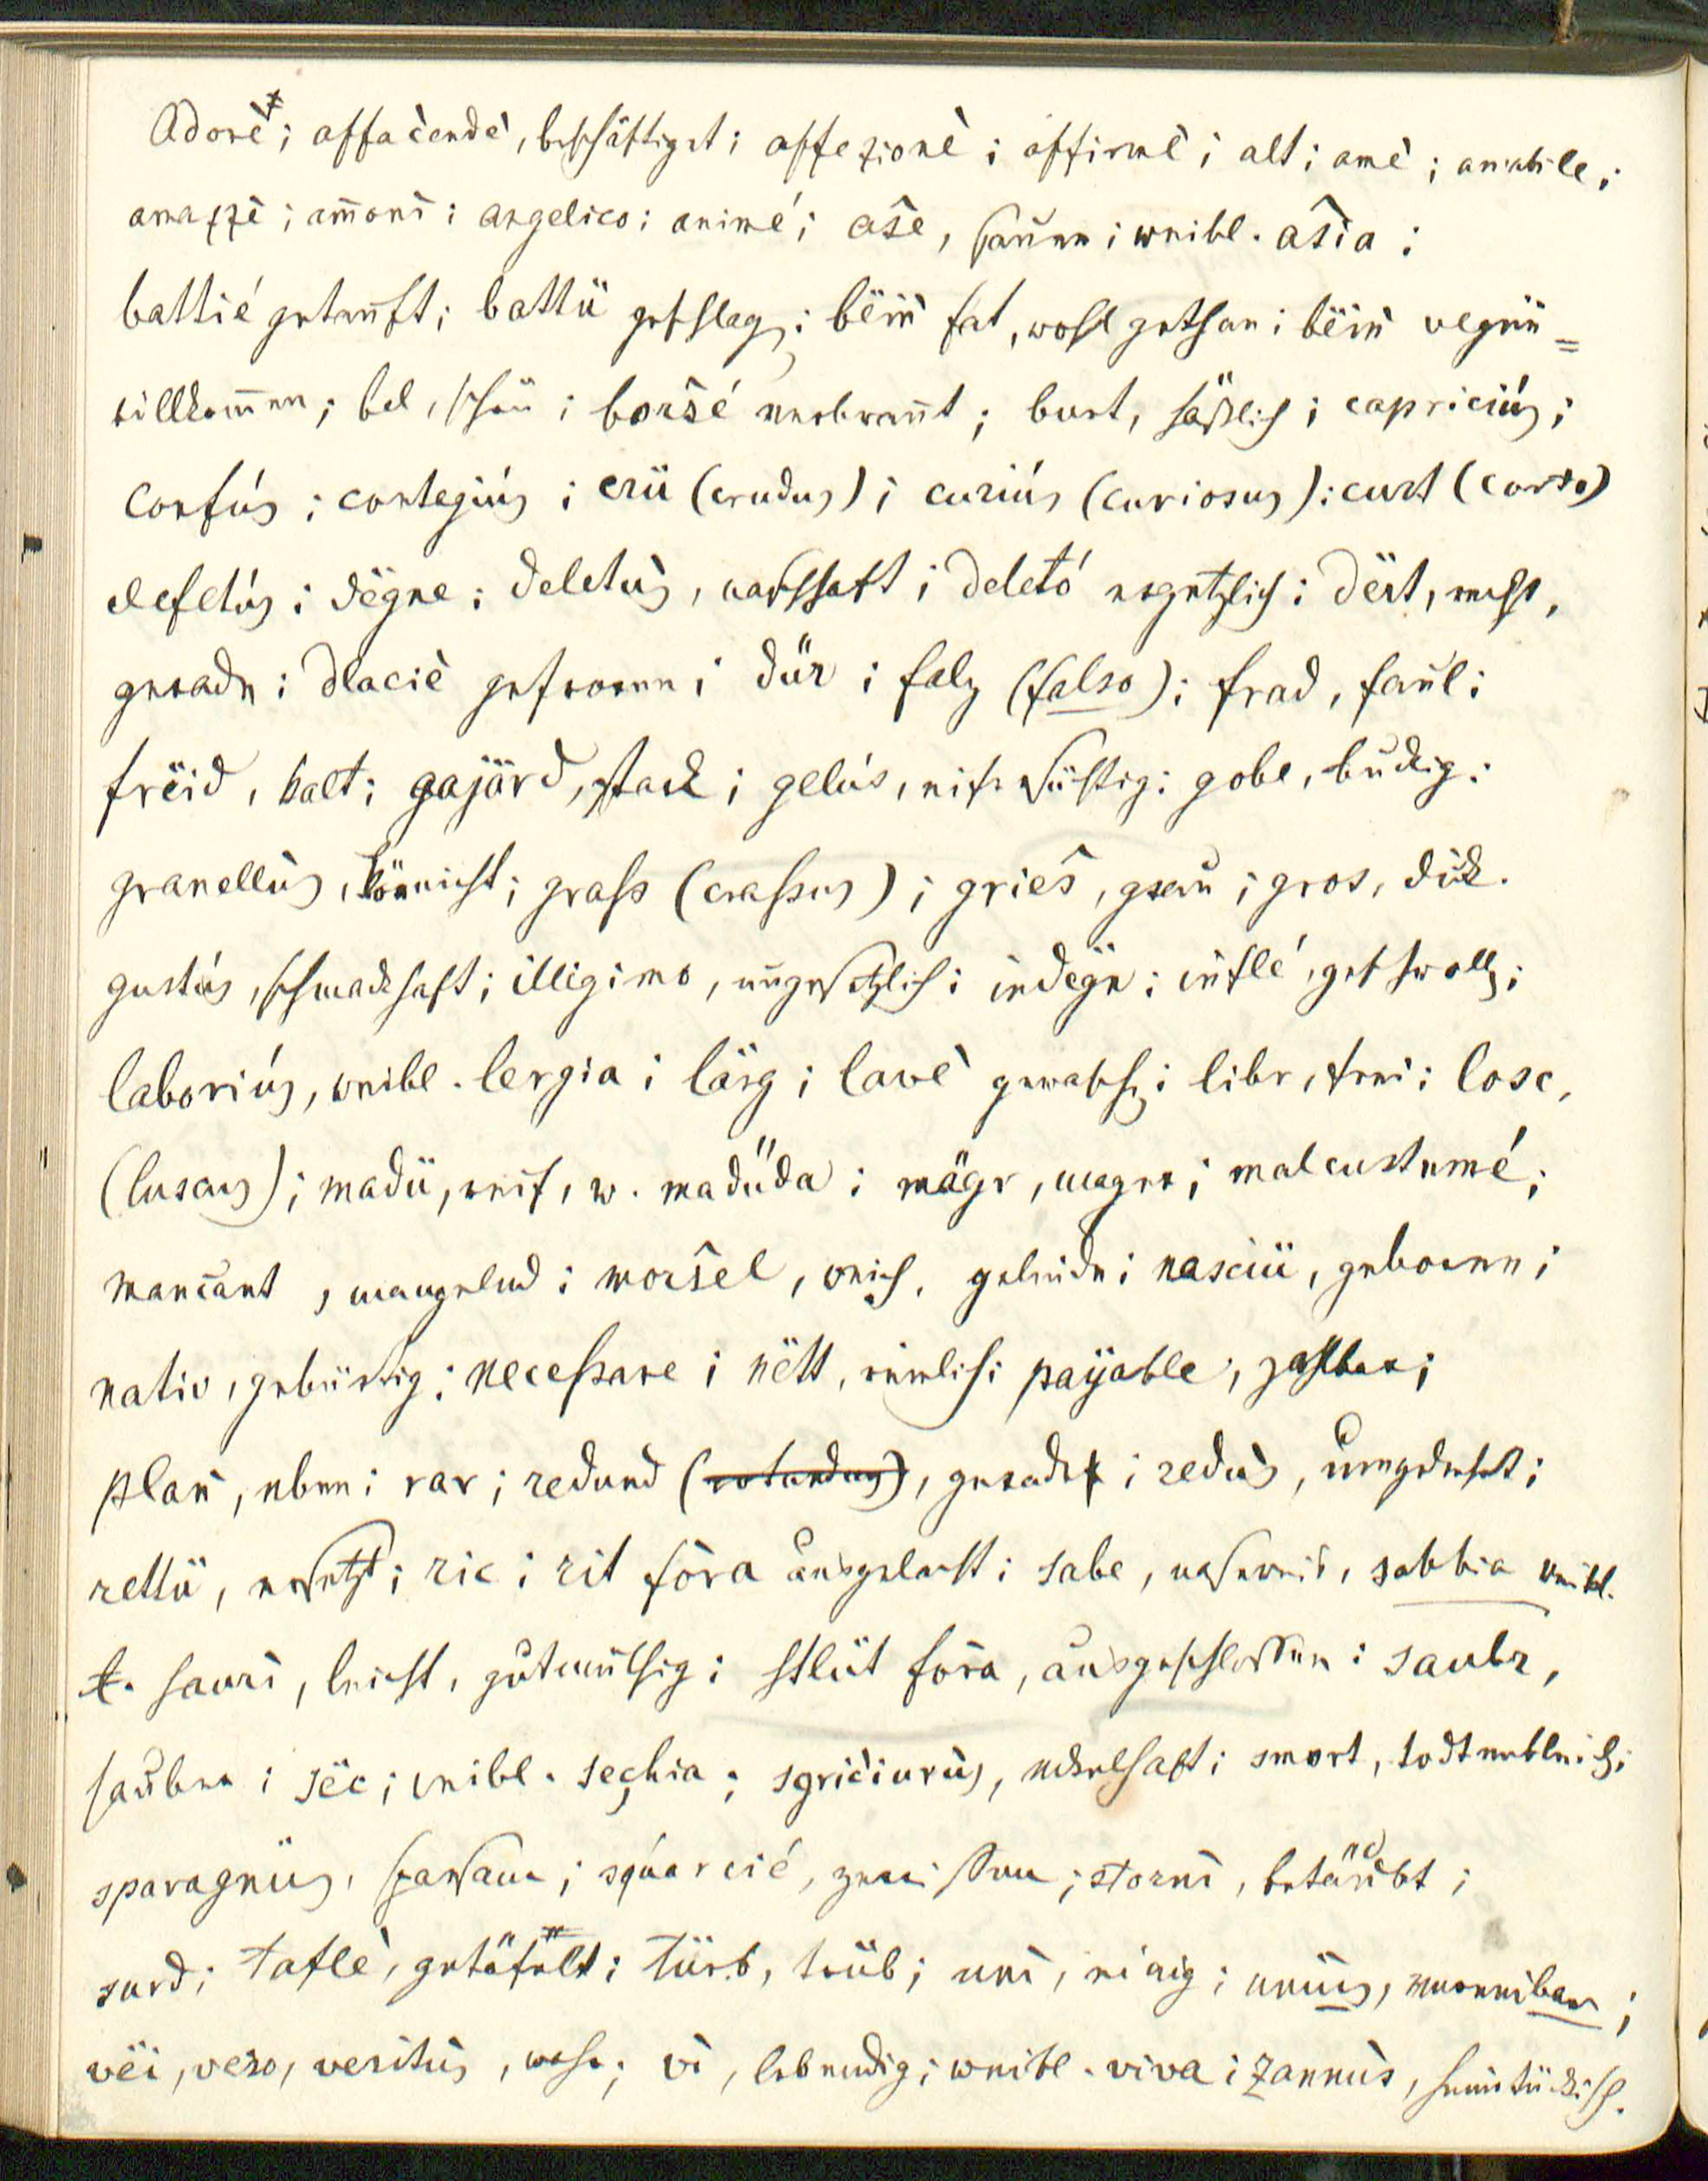 Adorè; affacendè, beschäftiget; affezionè; affirmè; alt; amè; amabile;
amazzè; am̄onì; angelico; animé; aŝe, sauer; weibl. aŝia;
battié getauft; battü geschlagen; bëiñ fat, wohl gethan; bëiñ vegnü=
willkom̄en; bel, schön; borŝé verbrannt; burt, häßlich; capriciús;
confús; contegiús; crü (crudus); curiús (curiosus); curt (corto)
defetús; dëgne; deletùs, nahrhaft; deletó ergetzlich; dërt, recht,
gerade; dlaciè gefroren; dür; falz (falso); frad, faul;
frëid, kalt; gajärd, stark; gelús, eifersüchtig; gobe, buckig;
granellùs, körnicht; grass (crassus); grieŝ, grau; gros, dick.
gustús, schmackhaft; illigimo, ungesetzlich; indëgn; inflé, geschwollen;
laboriús, weibl. lergia; lärg; lavè gewaschen; libr, frei; losc,
(luscus); madü, reif, w. madüda; mägr, mager; malcustumé;
mancant, mangelnd; morŝel, weich, gelinde; nasciü, geboren;
nativ, gebürtig; necessare; nëtt, reinlich; payable, zahlbar;
plañ, eben; rar; redund (rotundus), gerade; redùs, umgedreht;
rettü, ersetzt; ric; rit fòra ausgelacht; sabe, naseweis, sabbia weibl.
t. saurì, leicht, gutmüthig; stlüt fòra, ausgeschlossen; saubr,
sauber; sëc; weibl. sechia; sgriciurùs, eckelhaft; smort, todtverbleich;
sparagnùs, sparsam; squarcié, zerrissen; stornì, betäubt;
surd; taflè, getäfelt; türb, trüb; unì, einig; uniüs, vereinbar;
vëi, vero, veritùs, wahr; vì, lebendig; weibl. viva; zannùs, heimtückisch.